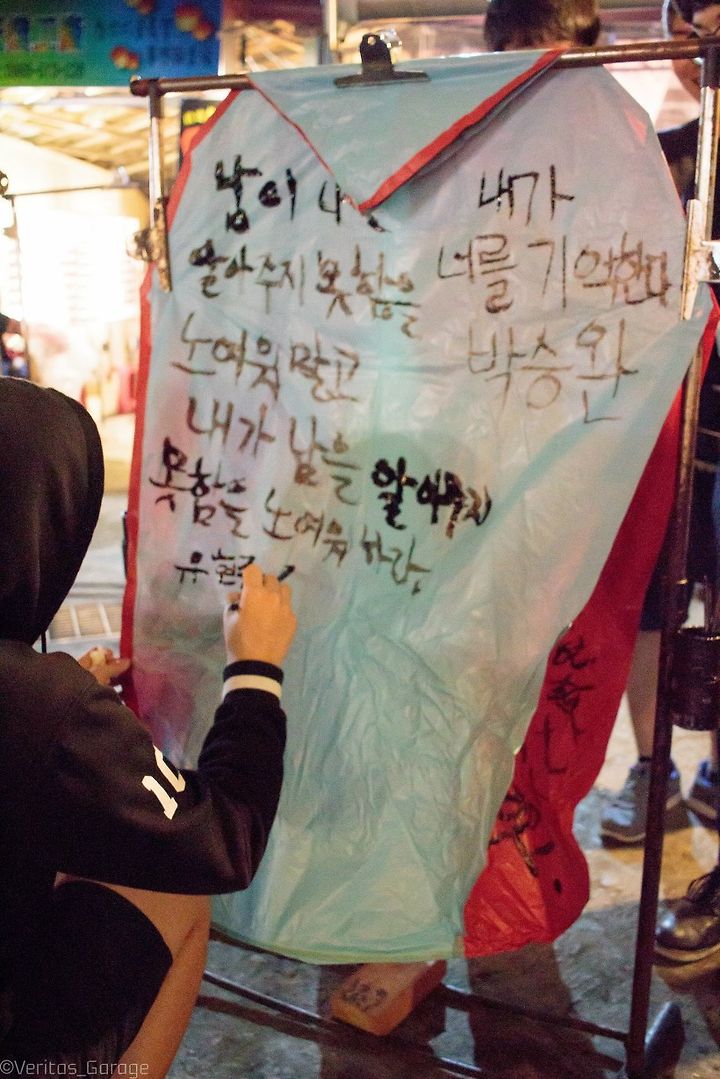 남이
알아주지 못함을
노여워 말고
내가 남을 알아주지
못함을 노여워 하라.
내가
너를 기억한다
박승완
10
©Veritas_Garage